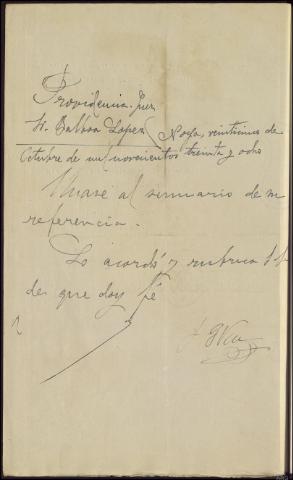 Providencia. Juez
Sr. Balboa Lopez Noya, veintiuno de
Octubre de mil novecientos treinta y ocho
Unase al sumario de su
referencia.
Lo acordó y rubrica S.S.
de que doy fé